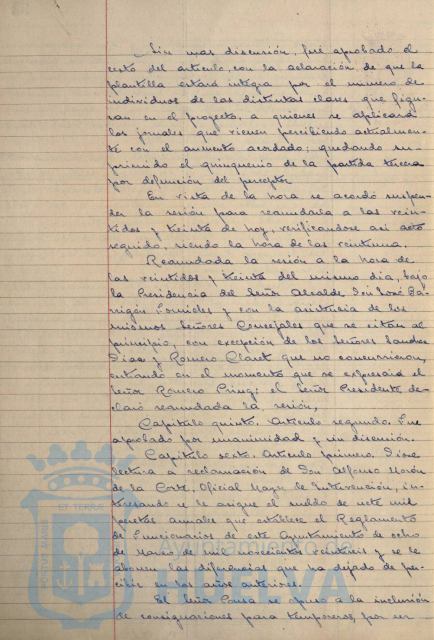 Sin mas discusión, fué aprobado el
resto del artículo, con la aclaración de que la
plantilla estará integra por el número de
individuos de las distintas clases que figu-
ran en el proyecto, a quienes se aplicará
los jornales que vienen percibiendo actualmen-
te con el aumento acordado; quedando su-
primido el quinquenio de la partida tercera
por defunción del perceptor
En vista de la hora se acordó suspen-
der la sesión para reanudarla a las vein-
tidos y treinta de hoy, verificandose así acto
seguido, siendo la hora de las veintiuna.
Reanudada la sesión a la hora de
las veintidos y treinta del mismo día, bajo
la Presidencia del Señor Alcalde Don José Ba-
rrigón Fornieles y con la asistencia de los
mismos Señores Concejales que se citan al
principio, con excepción de los Señores Sanchez
Diaz y Romero Claret que no concurrieron,
entrando en el momento que se expresará el
Señor Romero Pring; el Señor Presidente de-
claró reanudada la sesión,
Capítulo quinto. Artículo segundo. Fue
aprobado por unanimidad y sin discusión.
Capítulo sexto. Artículo primero. Diose
lectura a reclamación de Don Alfonso Morón
de la Corte, Oficial Mayor de Intervención, in-
teresando se le asigne el sueldo de siete mil
pesetas anuales que establece el Reglamento
de Funcionarios de este Ayuntamiento de ocho
de Marzo de mil novecientos veintiseis y se le
abonen las diferencias que ha dejado de per-
cibir en los años anteriores.
El Señor se opuso a la inclusión
de consignaciones para temporeros, por ser
PORTUS MARIS
ET TERRAE
Ayuntamiento de
HUELVA